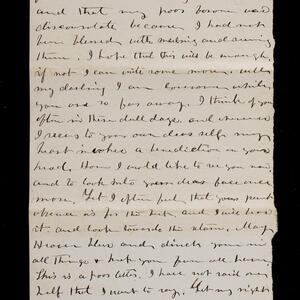 and that my poor bosom was
disconsolate because I had not
been blessed with meeting and seeing
them. I hope that this will be enough,
if not I can write some more. Well
my darling I am lonesome while
you are so far away. I think of you
often in these dull days, and whenever
I to your own dear self my
heart invokes a benediction on your
head. How I would like to see you now
and to look into your dear face once
more. Yet I often feel that your present
absence is for the best and I will bear
it and look towards the . May
Heaven bless and direct you in
all things & keep you from all harm.
This is a poor letter. I have not said over
half that I want to say. but my